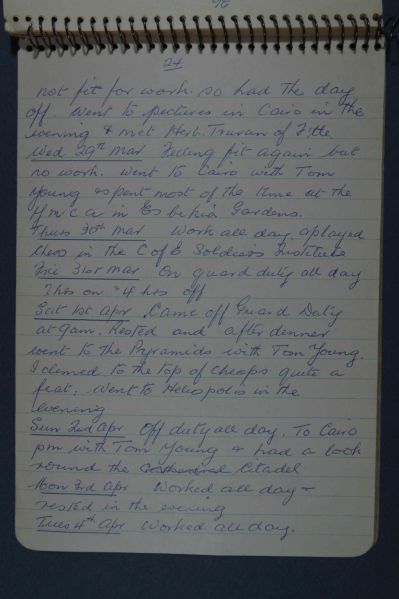 24
not fit for work so had the day
off. went to pictures in Cairo in the
evening & met Herb. of
Wed 29th Mar Feeling fit again but
no work. went to Cairo with Tom
Young & spent most of the time at the
Y m c a in Esbekia Gardens.
Thurs 30th Mar Work all day, & played
chess in the C of E Soldiers Institute
Fri 31st Mar On guard duty all day
2 hrs on "4 hrs off
Sat 1st apr Came off Guard Duty
at 9am. Rested and after denner
went to the Pyramids with Tom Young.
I climed to the top of Cheops quite a
feat. Went to Heliopolis in the
evening
Sun 2nd apr Off duty all day. To Cairo
pm with Tom Young & had a look
round the Citadel
Mon 3rd apr Worked all day &
rested in the evening
Tues 4th apr Worked all day.